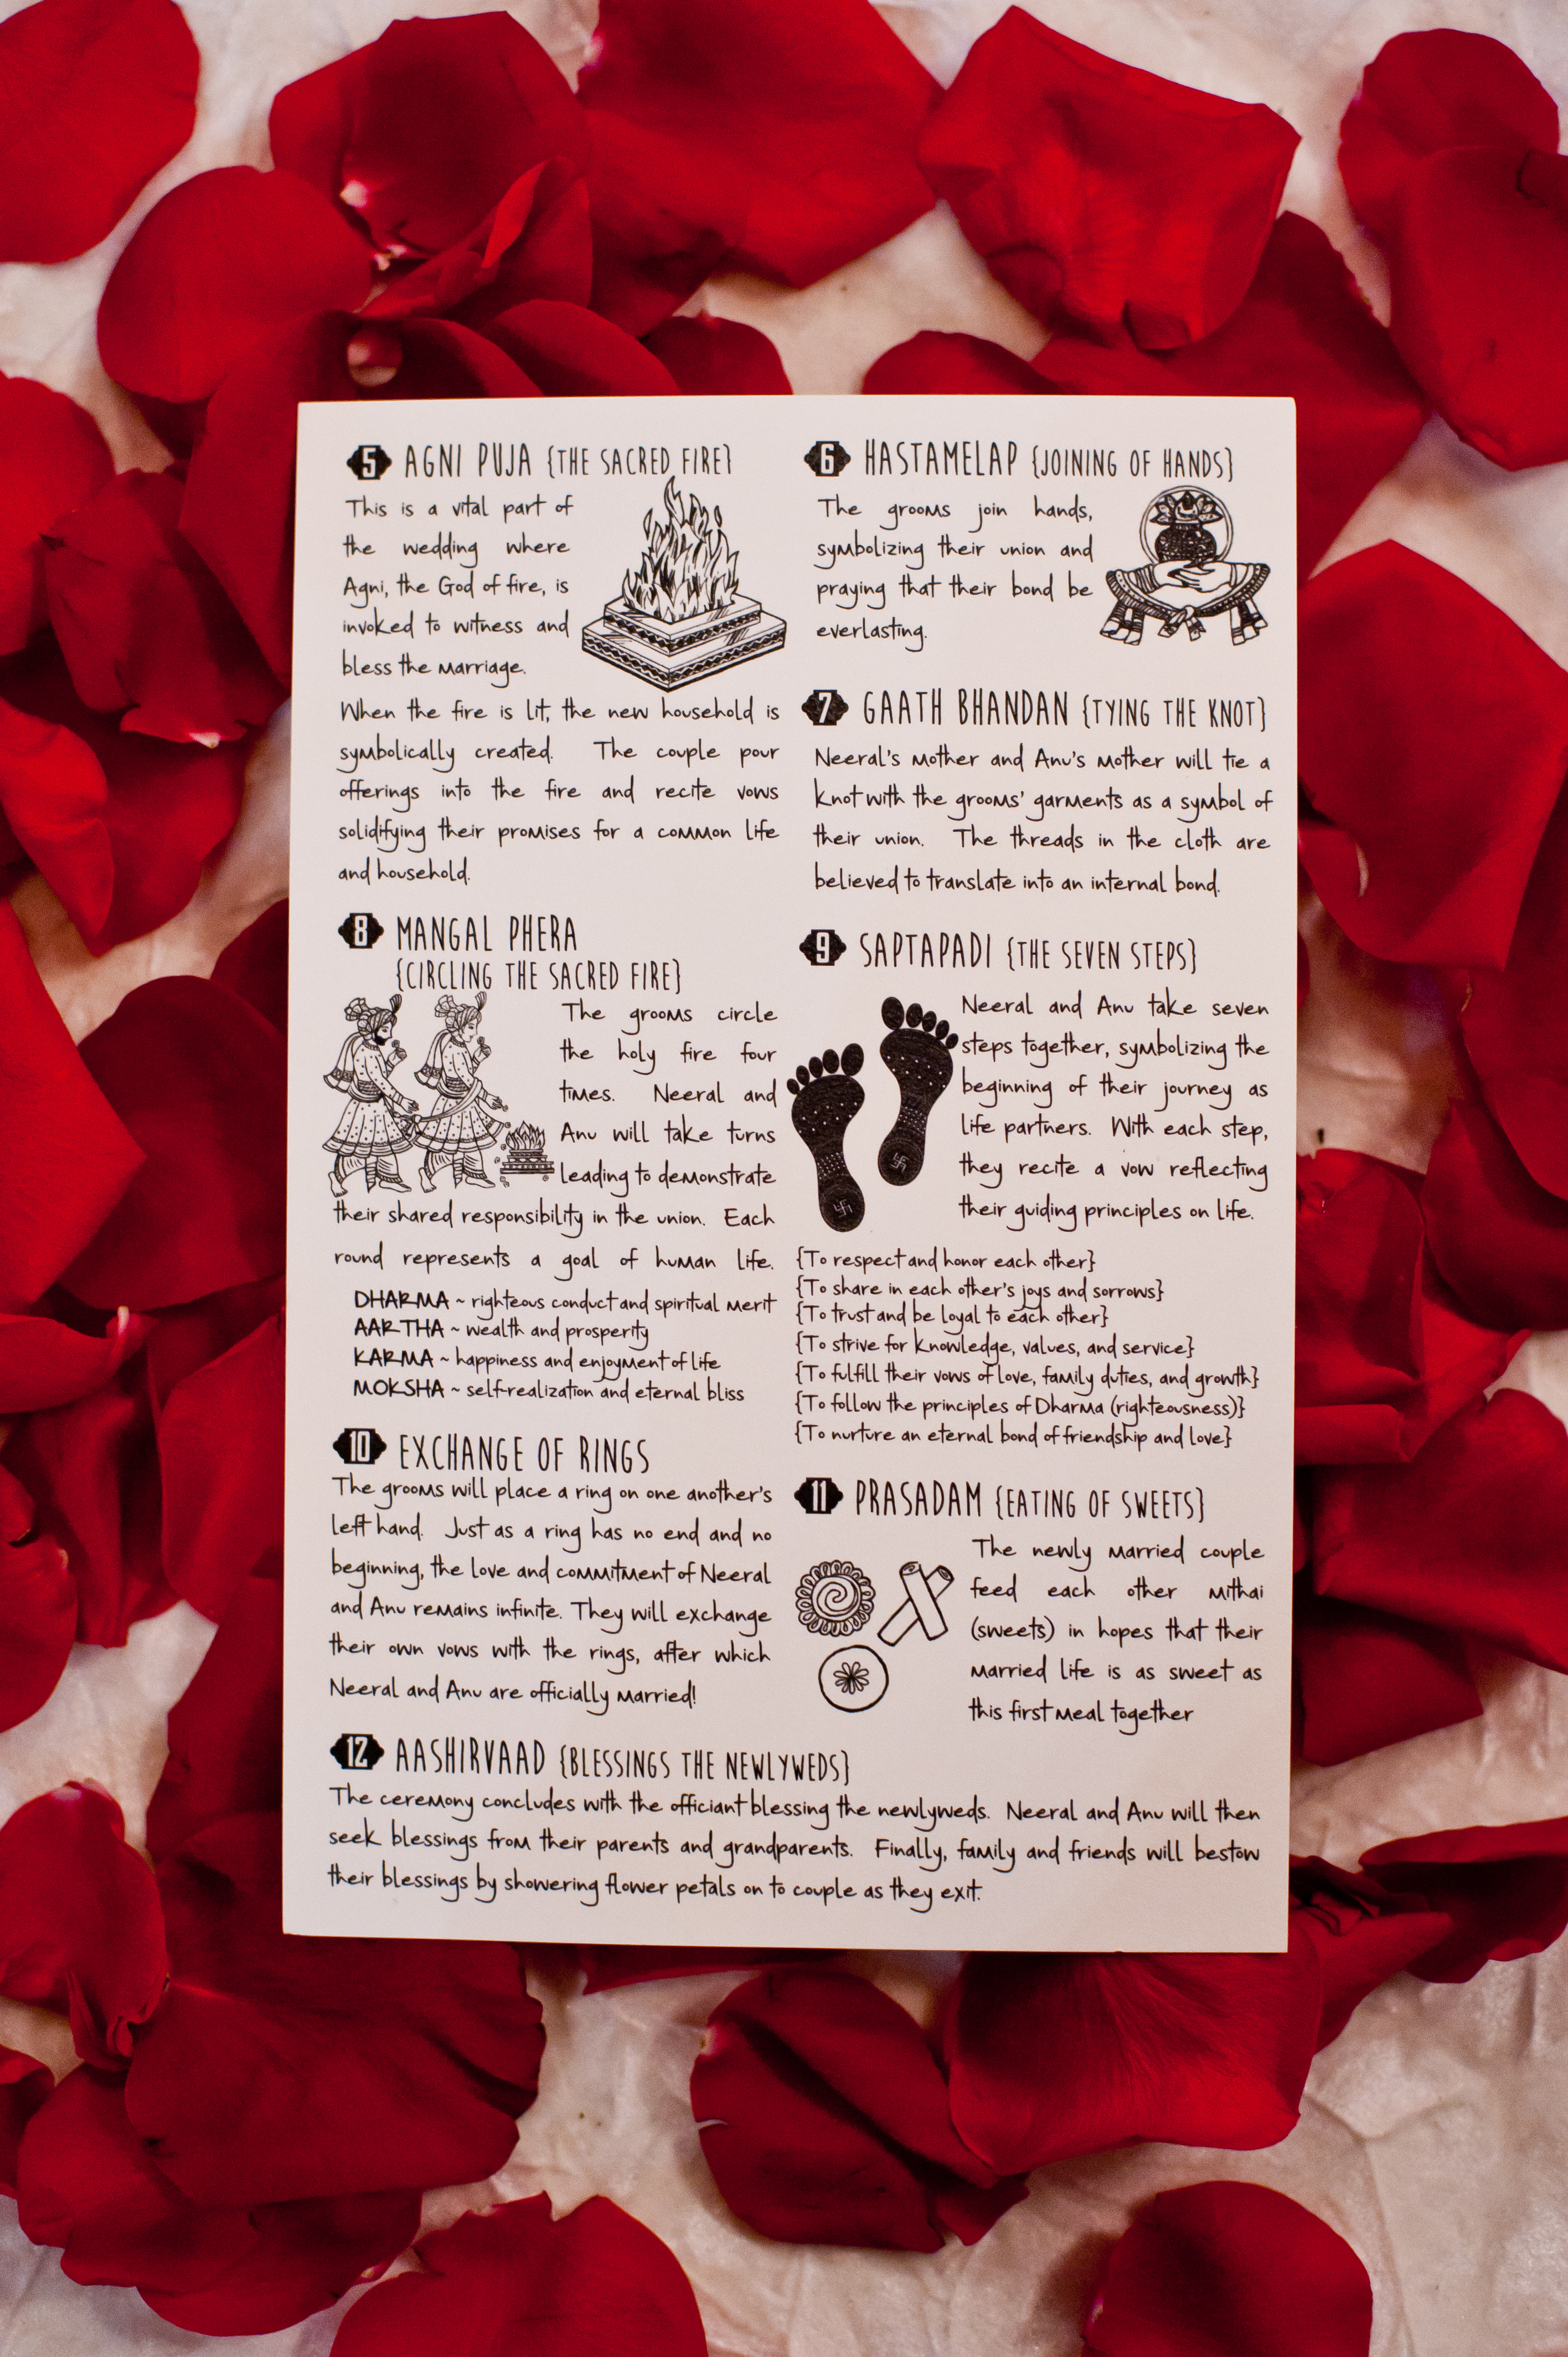 5 AGNI PUJA {THE SACRED FIRE}
This is a vital part of
the wedding where
Agni, the God of fire, is
invoked to witness and
bless the marriage.
When the fire is lit, the new household is
symbolically created. The couple pour
offerings into the fire and recite vows
solidifying their promises for a common life
and household.
6 HASTAMELAP {JOINING OF HANDS}
The grooms join hands,
symbolizing their union and
praying that their bond be
everlasting.
7 GAATH BHANDAN {TYING THE KNOT}
Neeral's mother and Anu's mother will tie a
knot with the grooms' garments as a symbol of
their union. The threads in the cloth are
believed to translate into an internal bond.
8 MANGAL PHERA
{CIRCLING THE SACRED FIRE}
The grooms circle
the holy fire four
times. Neeral and
Anu will take turns
leading to demonstrate
their shared responsibility in the union. Each
round represents a goal of human life.
DHARMA ~ righteous conduct and spiritual merit
AARTHA ~ wealth and prosperity
KARMA ~ happiness and enjoyment of life
MOKSHA ~ self-realization and eternal bliss
9 SAPTAPADI {THE SEVEN STEPS}
Neeral and Anu take seven
steps together, symbolizing the
beginning of their journey as
life partners. With each step,
they recite a vow reflecting
their guiding principles on life.
{To respect and honor each other}
{To share in each other's joys and sorrows}
{To trust and be loyal to each other}
{To strive for knowledge, values, and service}
{To fulfill their vows of love, family duties, and growth}
{To follow the principles of Dharma (righteousness)}
{To nurture an eternal bond of friendship and love}
10 EXCHANGE OF RINGS
The grooms will place a ring on one another's
left hand. Just as a ring has no end and no
beginning, the love and commitment of Neeral
and Anu remains infinite. They will exchange
their own vows with the rings, after which
Neeral and Anu are officially married!
11 PRASADAM {EATING OF SWEETS}
The newly married couple
feed each other mithai
(sweets) in hopes that their
married life is as sweet as
this first meal together
12 AASHIRVAAD {BLESSINGS THE NEWLYWEDS}
The ceremony concludes with the officiant blessing the newlyweds. Neeral and Anu will then
seek blessings from their parents and grandparents. Finally, family and friends will bestow
their blessings by showering flower petals on to couple as they exit.